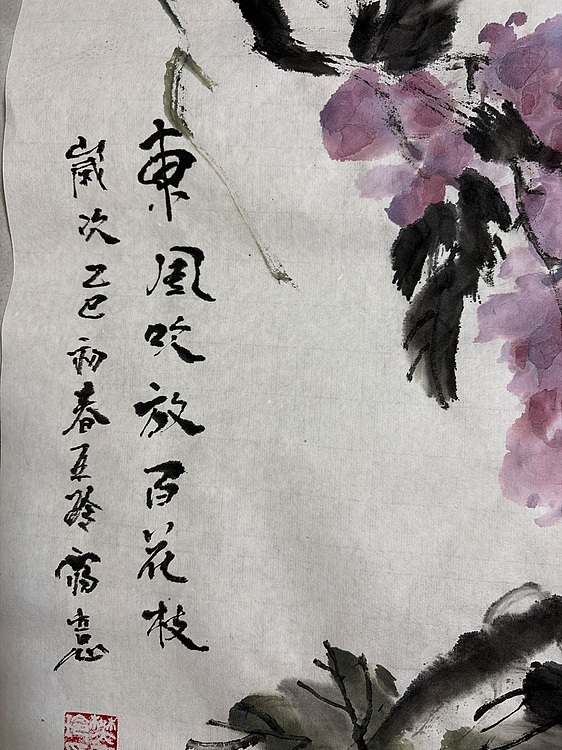 東風吹放百花枝
歲次乙巳初春玉玲寫意